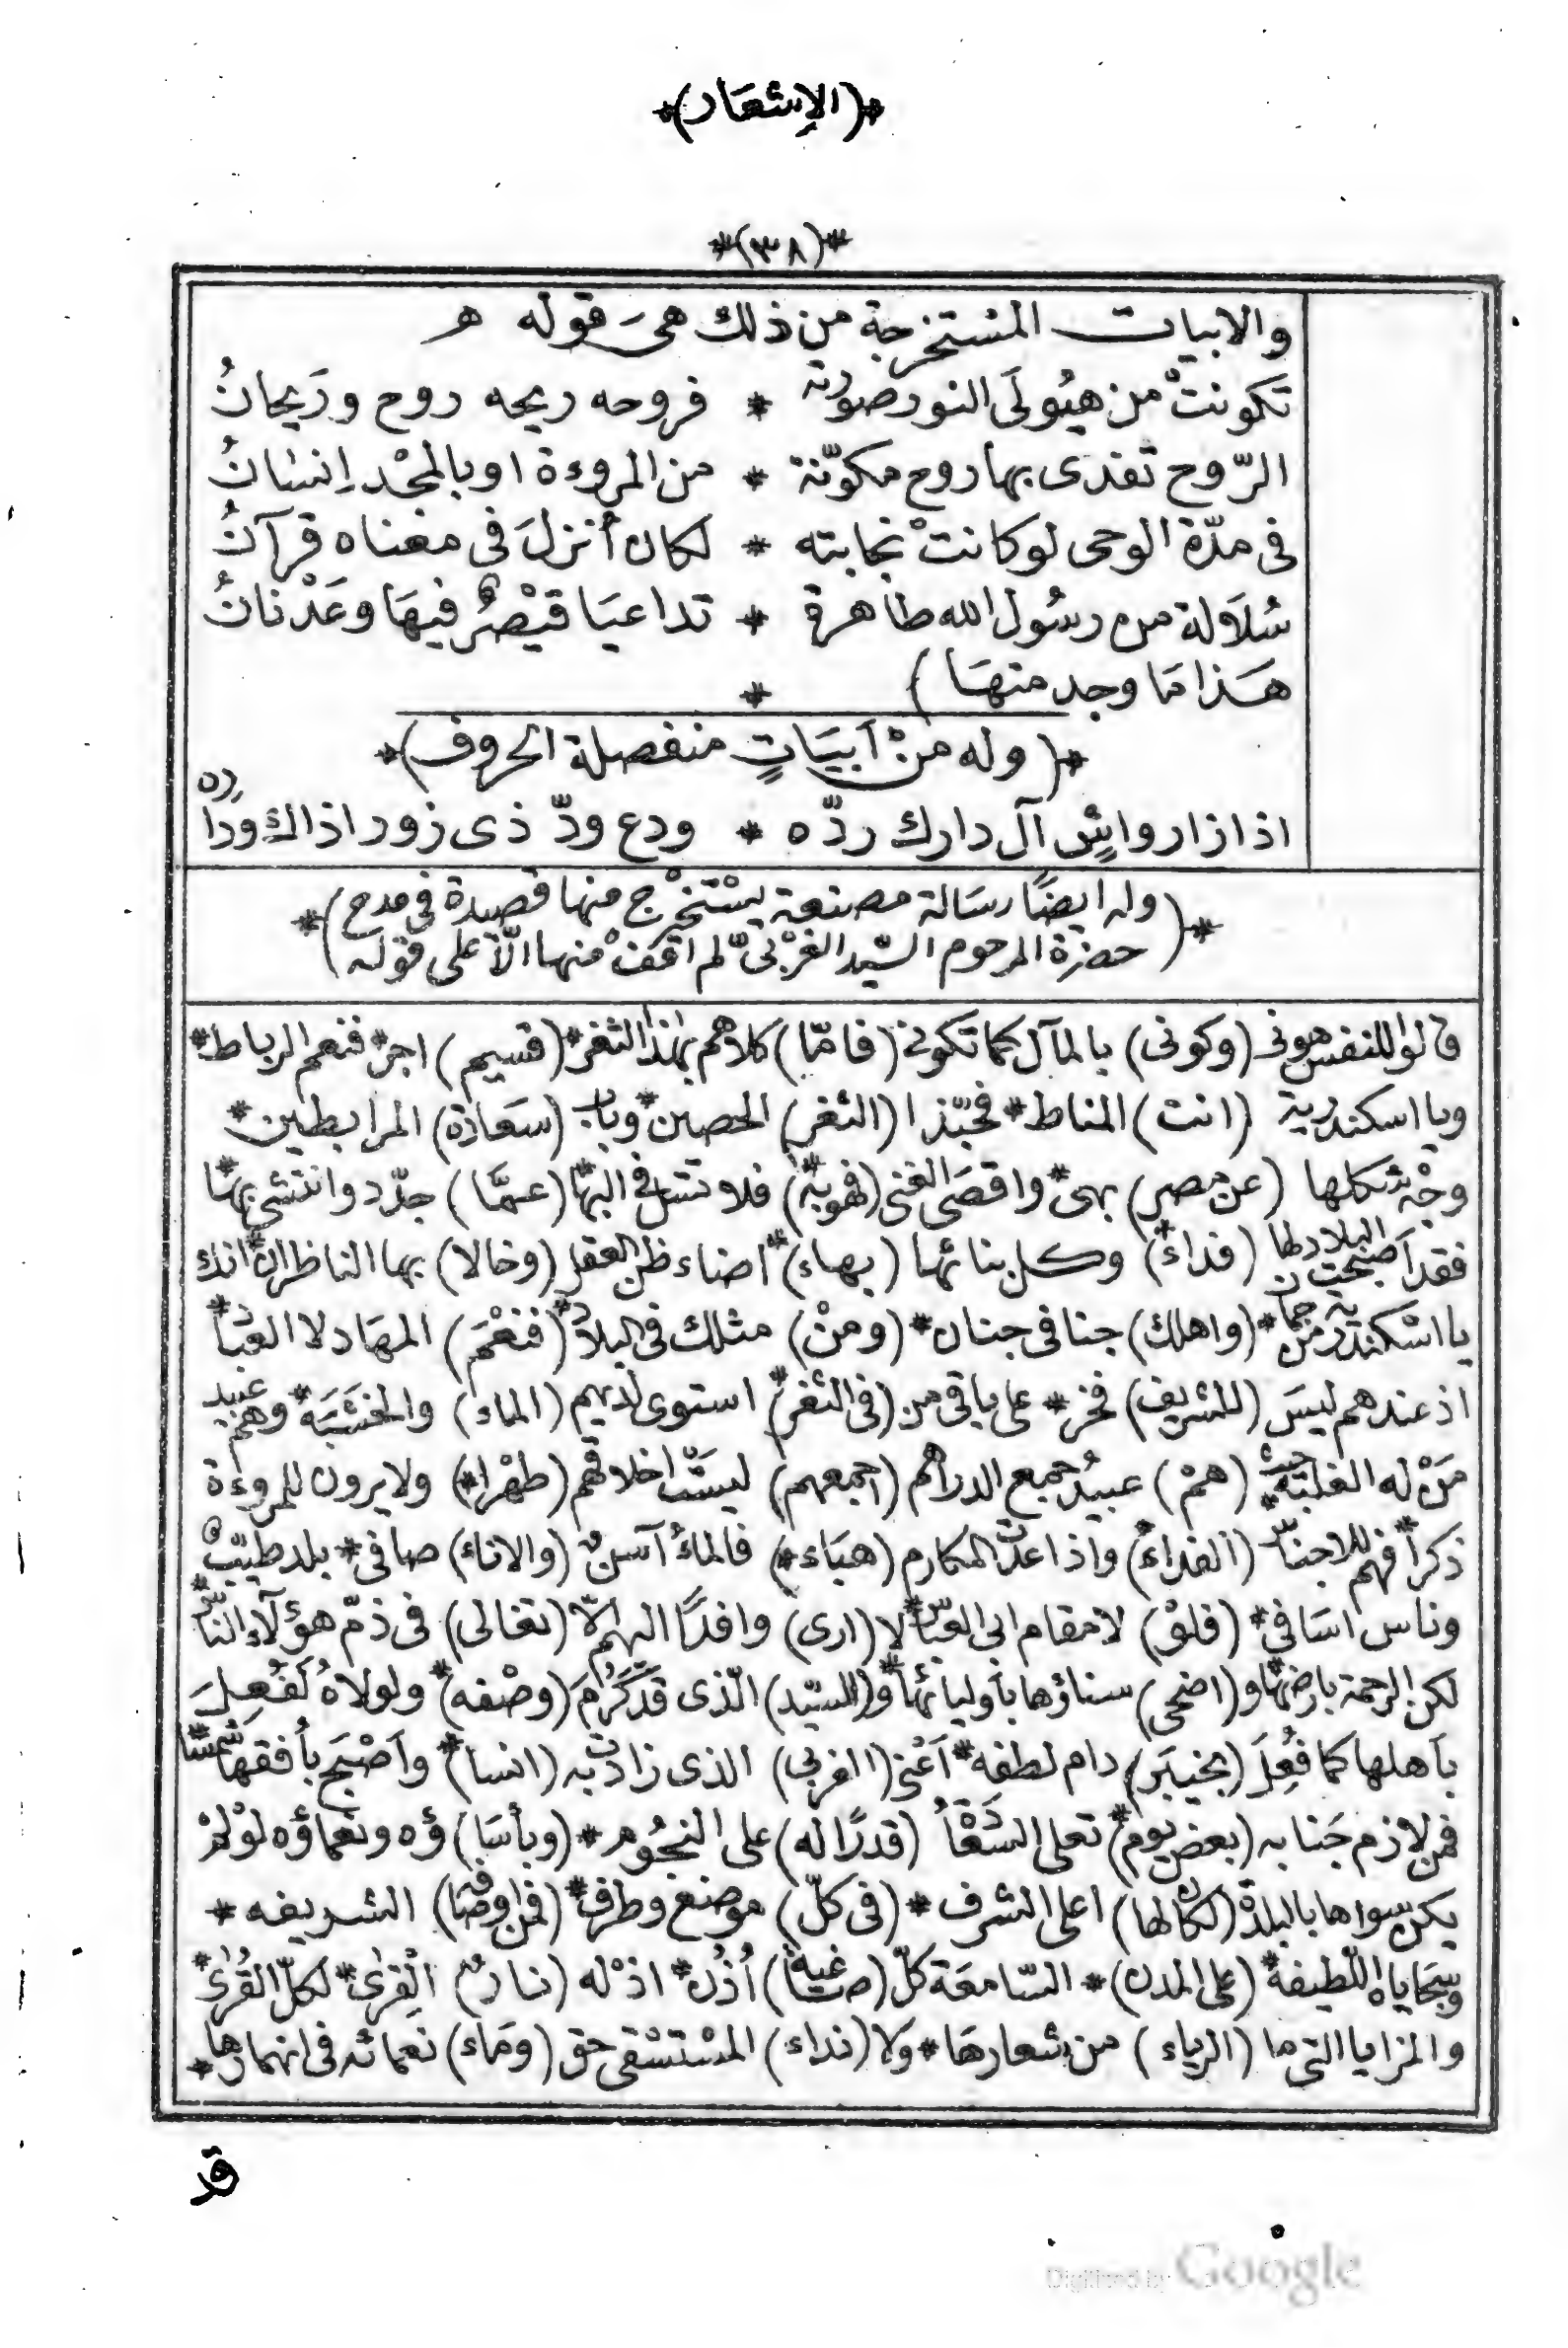 *(الإشعار)*
*(٣٨)*
والابيات المستخرجة من ذلك هىَ قوله هر
تكونتْ من هيُولَى النور صورته * فروحه ريحه روح ورَيحانُ
الرّوح تفدى بها روح مكوّنة * من المروءة او بالمجْد اِنسانُ
فى مدّة الوحى لو كانتْ نجابته * لكان أُنزلَ فى معناه قرآنُ
سُلاَلة من رسُول الله طاهرة * تداعيَا قيْصرٌ فيهَا وعَدْنانُ
هَذا مَا وجد منهَا) *
*(وله منْ اَبيَاتٍ منفصلة الحروف)*
اذا زار واشٍ آل دارك ردّه * ودع ودّ ذى زور اذا لك ودّا رده
*(وله ايضًا رسَالة مصنعة يسْتخرج منها قصيدة فى مدح
حضرة المرحوم السّيد الغرْبىّ لم اقفْ منها الّا على قوله)*
قالوا للنفس هونى (وكونى) بالمآل كما تكونى (فامّا) كلاهم بهٰذا الثغر* (قسيم) اجر* فنعم الرباط*
ويا اسكندرية (انت) المناط* فحبّذا (الثغر) الحصين* وباب (سعادة) المرابطين*
وجْه شكلها (عن مصر) بهىّ* واقصَى الغنى (فهو به*) فلا تنسل فى البها* (عمّا) جدّد وانتشى بها*
فقد اصبحت البلاد لها (فداء*) وكل بنائها (بهاء)* اضاء ظن العقل (وخالا) بها الناظران* انك
يا اسْكندرية من جمان* (واهلك) جنا فى جنان* (ومنْ) مثلك فى البلاد* (فنعْمَ) المهَاد لا العباد*
اذ عندهم ليسَ (للشريف) فخر* على باقى من (فى الثغر)* استوى لديهم (الماء) والخشَبَة* وهم عبيد
مَنْ له الغلبة* حيث (همْ) عبيدُ جميع الدراهم (اجمعهم) ليسَتْ اخلاقهم (طهْرا*) ولا يرون للمروءة
ذكرا* فهم للاجناس (الفداءُ) واذا عدّت المكارم (هبَاء*) فالماءُ آسنٌ (والاناء) صافى* بلد طيّبٌ
وناس اسَافى* (فلوْ) لا مقام ابى العبّاس* لا (ارى) وافدًا اليهم الّا (تغالى) فى ذمّ هؤلآء النّاس*
لكن الرحمة بارضها* و(اضحى) سناؤها باَوليائها* و(السيّد) الّذى قد كَرُمَ (وصْفه)* ولولاهُ لَفُعِلَ
باَهلها كما فُعِلَ (بخيبَر) دام لطفه* اَعْنى (الغربى) الذى زادت به (انسا)* واَصْبحَ بأُفقها شمسًا*
فمن لازم جَنابه (بعض يوم)* تعلى السّعْدُ (قدرًا له) على النجُوم* (وبأسَا)ؤه ونعماؤه لوْ لمْ
يكن سواها بالبلدة (لكان لها) اعلى الشرف* (فى كلّ) موضع وطرف* (فمن اوصَافه) الشريفه*
وسجاياه اللّطيفة* (على المدن)* السّامعَة كلّ (صاغية) أُذُن* اذْ له (نارٌ) القِرىٰ* لكلّ القُرىٰ*
والمزايا التى ما (الرياء) من شعارهَا* وَلا (نداء) المسْتسْقى حق (ومَاء) نعمائه فى انهارها*
قد
Digitized by Google